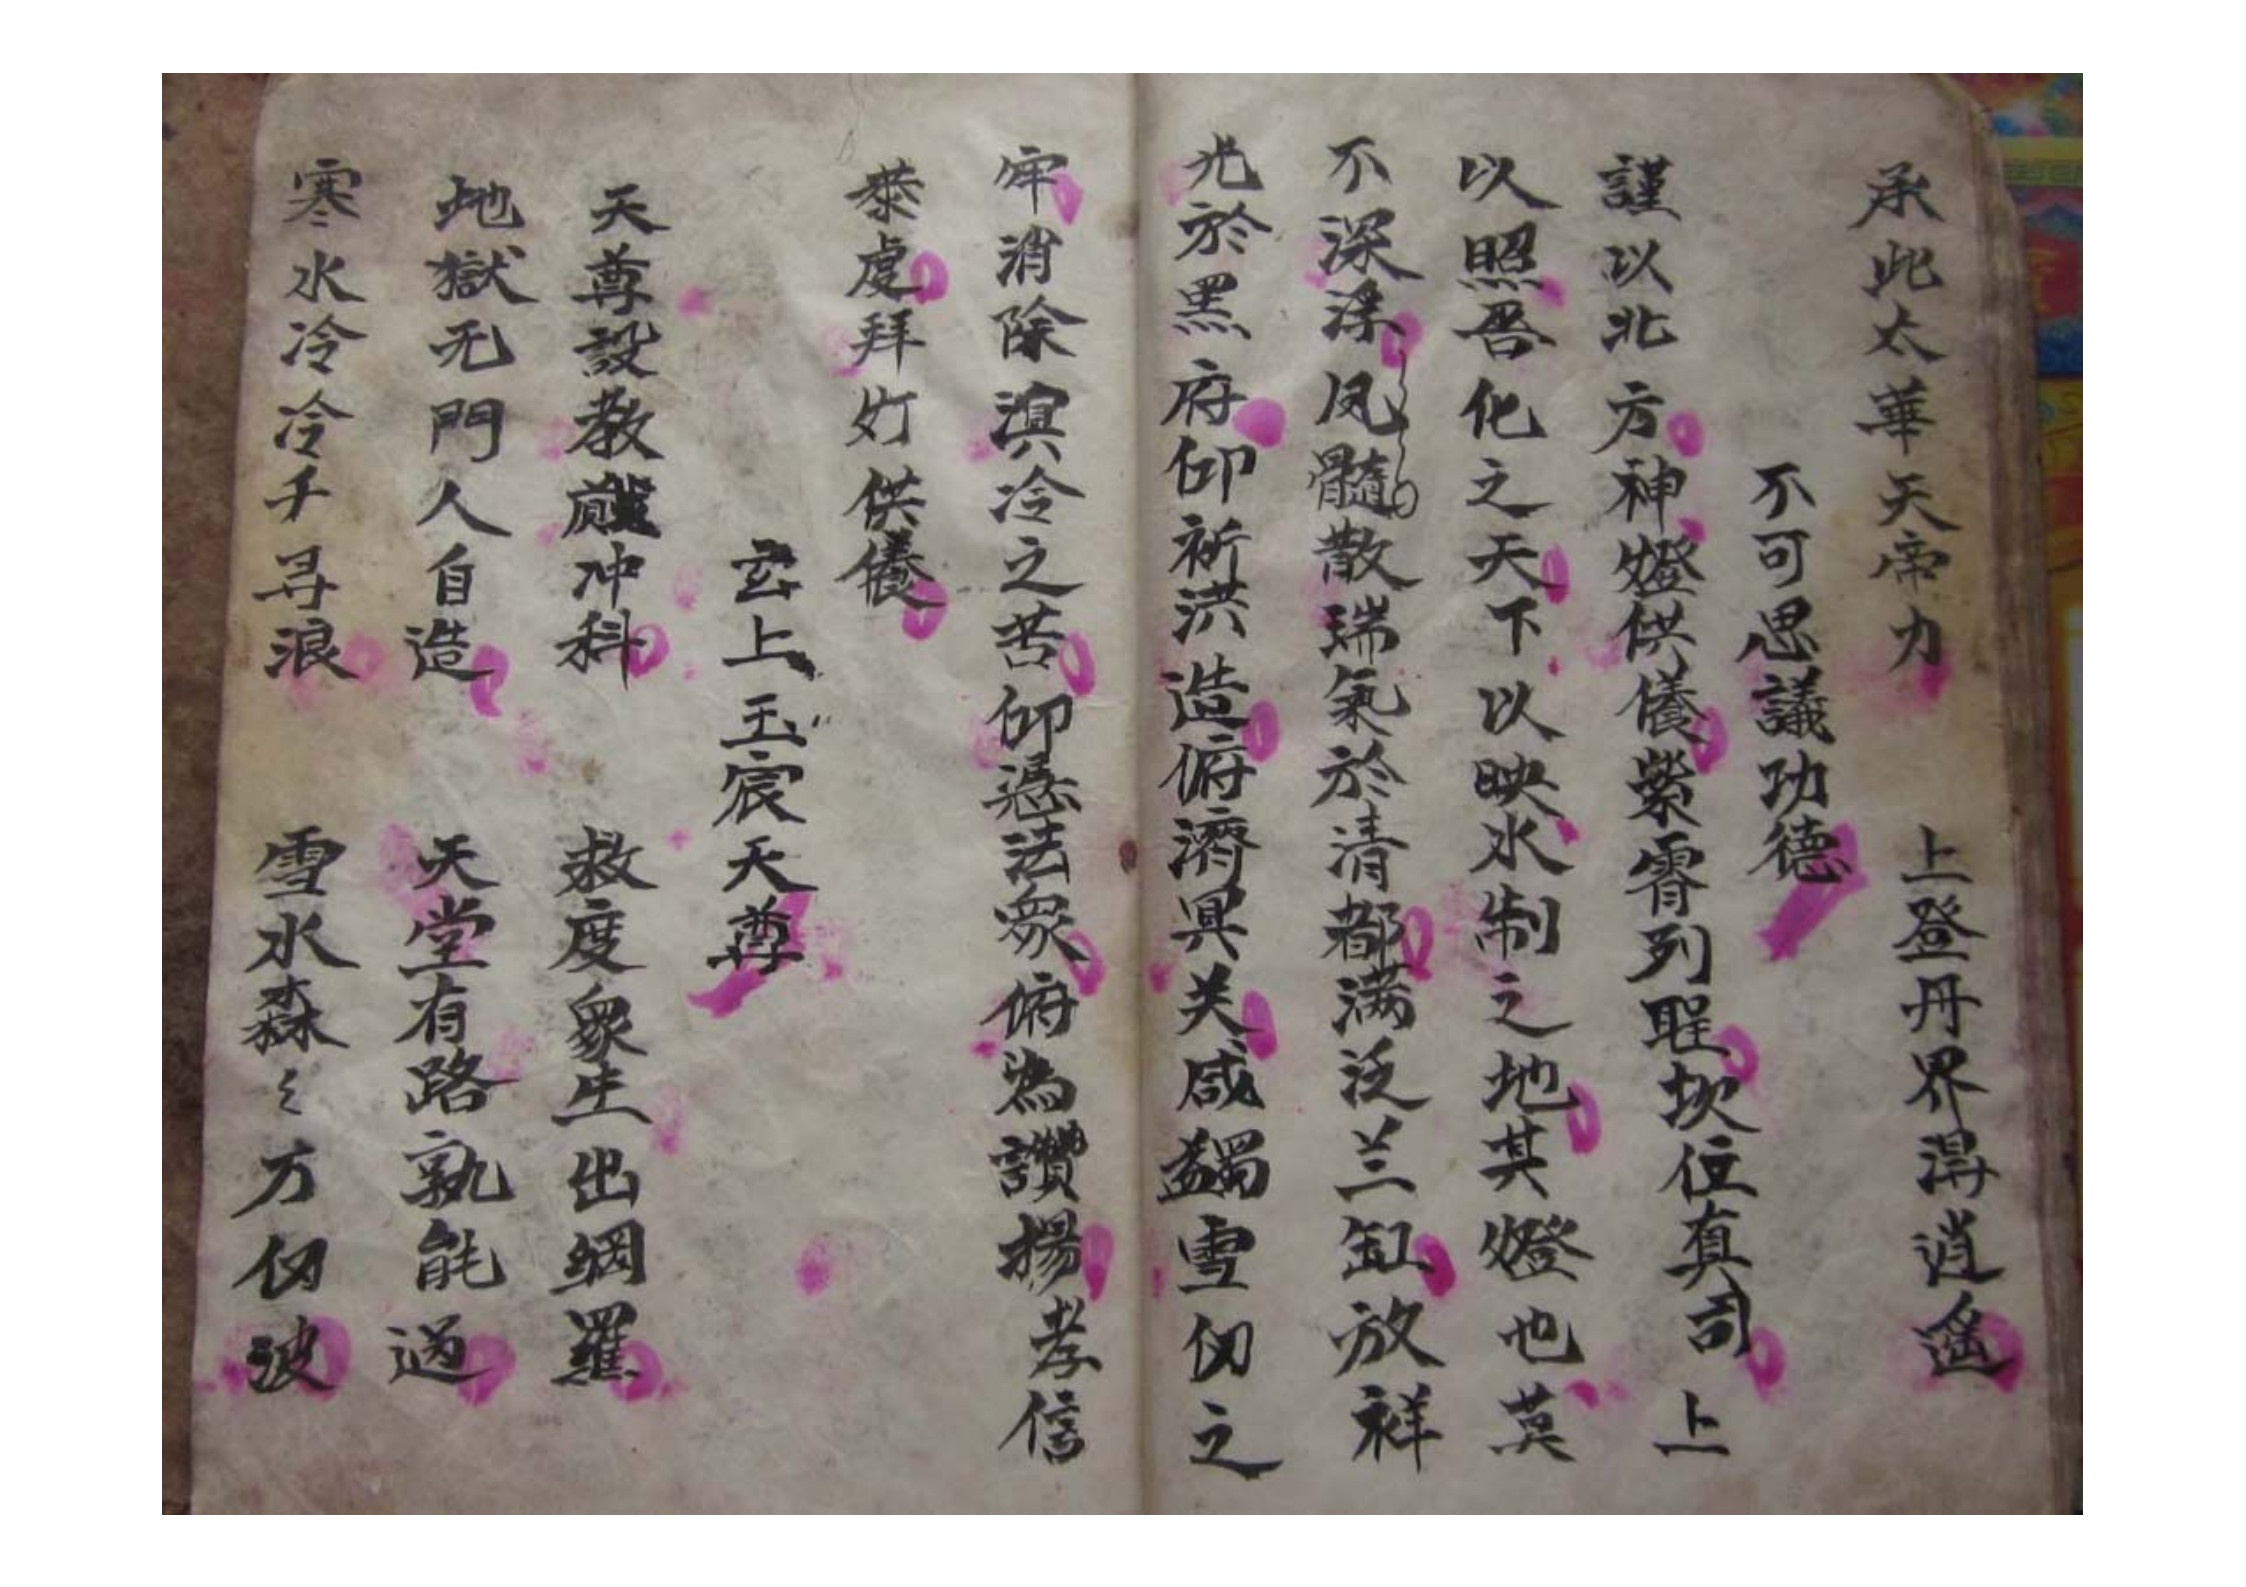 承此太華天帝力 上登丹界淂逍遥
不可思議功德
謹以北方神燈供養紫霄列聖坎位真司 上
以照吾化之天下以映水制之地其燈也莫
不深深凤髓散瑞氣於清都满泛兰缸放祥
光於黑府仰祈洪造俯濟冥关咸蠲雪仞之
牢消除溟冷之苦仰憑法衆俯為讚揚孝信
恭虔拜灯供養
玄上玉宸天尊
天尊設教啟冲科 救度衆生出網羅
地獄无門人自造 天堂有路孰能過
寒水冷冷千寻浪 雪水森〻万仞波